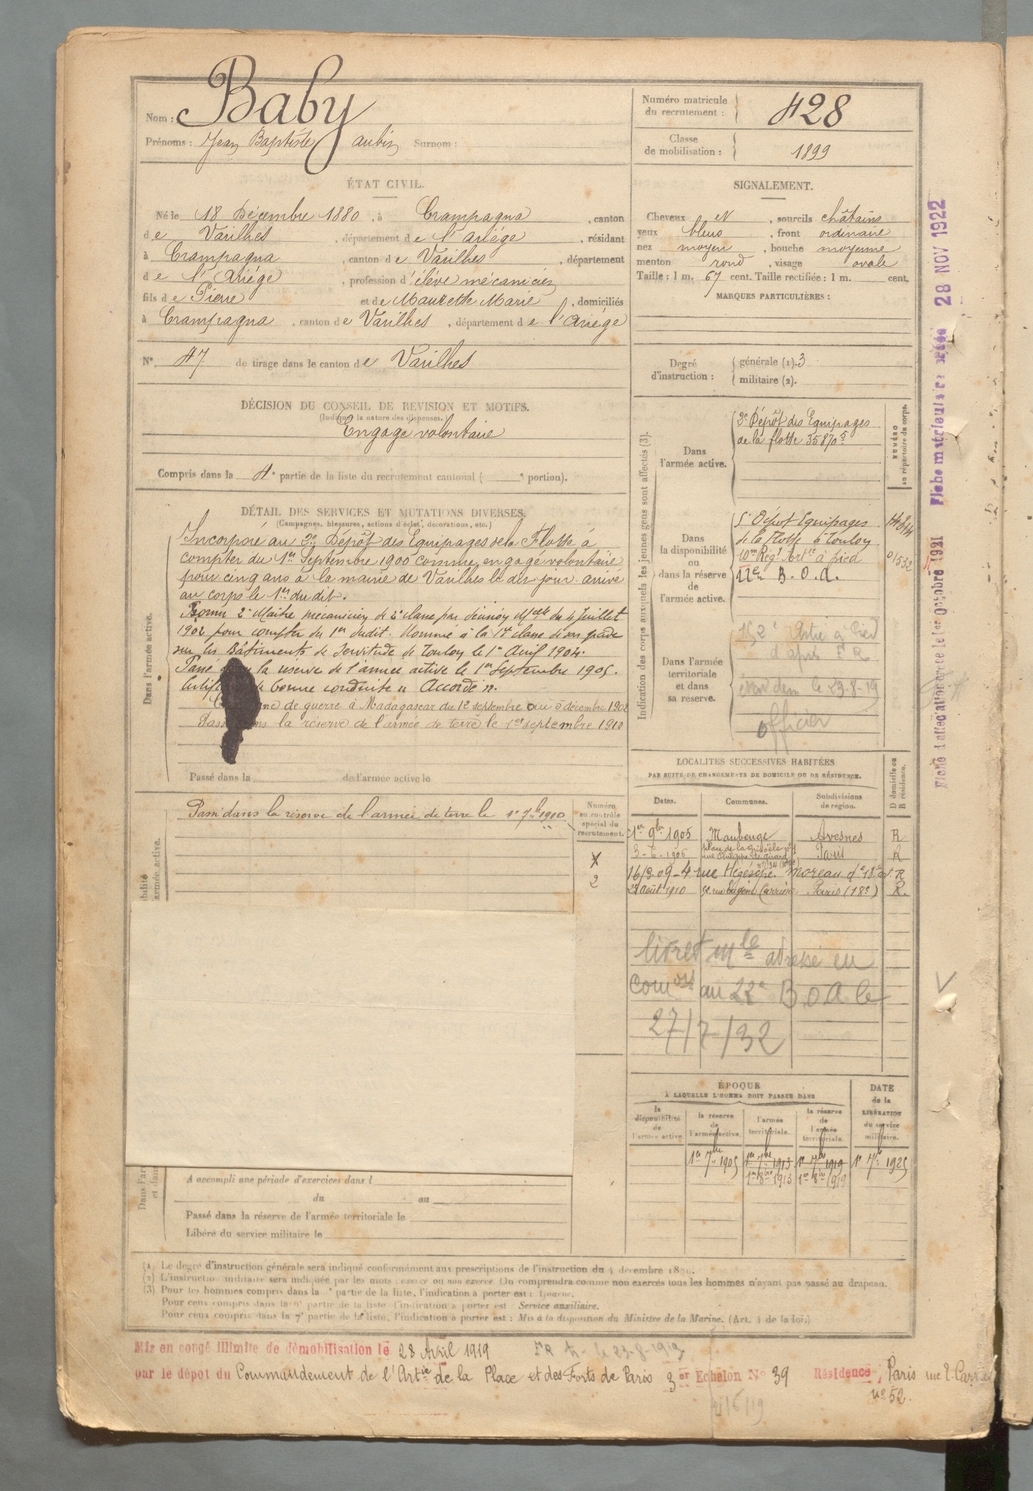 Nom : Baby
Prénoms : Jean Baptiste aubin Surnom :
ÉTAT CIVIL.
Né le 18 Décembre 1880, à Crampagna, canton
de Varilhes, département de l'Ariège, résidant
à Crampagna, canton de Varilhes, département
de l'Ariège, profession d'élève mécanicien
fils de Pierre et de Maurette Marie, domiciliés
à Crampagna, canton de Varilhes, département de l'Ariège
N° 47 de tirage dans le canton de Varilhes
DÉCISION DU CONSEIL DE REVISION ET MOTIFS.
(Indiquer la nature des dispenses.)
Engagé volontaire
Compris dans la 4e partie de la liste du recrutement cantonal ( e portion).
DÉTAIL DES SERVICES ET MUTATIONS DIVERSES.
(Campagnes, blessures, actions d'éclat, décorations, etc.)
Dans l'armée active.
Incorporé au 3e Dépôt des Equipages de la Flotte à
compter du 1er Septembre 1900 comme engagé volontaire
pour cinq ans à la mairie de Varilhes le dit jour arrivé
au corps le 1er du dit.
Promu 2e Maître mécanicien de 2e classe par décision Mlle du 4 juillet
1902 pour compter du 1er dudit. Nommé à la 1re classe de son grade
sur les Bâtiments de Servitude de Toulon le 1er Avril 1904.
Passé la réserve de l'armée active le 1er Septembre 1905.
Certificat de bonne conduite "Accordé".
de guerre à Madagascar du 1er septembre au 5 décembre 1902
Passé dans la réserve de l'armée de terre le 1er septembre 1910
Passé dans la de l'armée active le
Passé dans la réserve de l'armée de terre le 1er 7bre 1910
Numéro
au contrôle
spécial du
recrutement.
X
2
A accompli une période d'exercices dans l
du au
Passé dans la réserve de l'armée territoriale le
Libéré du service militaire le
Numéro matricule
du recrutement : 428
Classe
de mobilisation : 1899
SIGNALEMENT.
Cheveux et , sourcils châtains
yeux bleus , front ordinaire
nez moyen , bouche moyenne
menton rond , visage ovale
Taille : 1 m. 67 cent. Taille rectifiée : 1 m. cent.
MARQUES PARTICULIÈRES :
Degré
d'instruction :
générale (1). 3
militaire (2).
Indication des corps auxquels les jeunes gens sont affectés (3).
NUMÉRO
au répertoire du corps.
Dans
l'armée active.
3e Dépôt des Equipages
de la flotte 35870
Dans
la disponibilité
ou
dans la réserve de
l'armée active.
5e Dépôt Equipages
de la Flotte à Toulon
10me Régt Artie à pied
22e B.O.A.
01532
Dans l'armée
territoriale
et dans
sa réserve.
Artie à Pied
d'après
le 23-8-19
officier
LOCALITÉS SUCCESSIVES HABITÉES
PAR SUITE DE CHANGEMENTS DE DOMICILE OU DE RÉSIDENCE.
Dates. Communes. Subdivisions de région. D domicile ou R résidence.
1er 9bre 1905 Maubeuge Avesnes R
3-6-1906 Paris R
16/3 09 - 4 rue Hégésippe Moreau R
24 Août 1910 52 rue Eugène Carrière Paris (18e) R.
livret Mle adressé en
au 22e B.O.A le
27/7/32
ÉPOQUE
À LAQUELLE L'HOMME DOIT PASSER DANS
la disponibilité de l'armée active
la réserve de l'armée active.
l'armée territoriale.
la réserve de l'armée territoriale.
DATE
de la
LIBÉRATION
du service
militaire.
1er 7bre 1905 1er 7bre 1913 1er 7bre 1919 1er 7bre 1925
1er 8bre 1913 1er 8bre 1919
Fiche matriculaire créée 28 NOV 1922
(1) Le degré d'instruction générale sera indiqué conformément aux prescriptions de l'instruction du 4 décembre 18 .
(2) L'instruction militaire sera indiquée par les mots : exercé ou non exercé. On comprendra comme non exercés tous les hommes n'ayant pas passé au drapeau.
(3) Pour les hommes compris dans la partie de la liste, l'indication à porter est :
Pour ceux compris dans la 6e partie de la liste, l'indication à porter est : Service auxiliaire.
Pour ceux compris dans la 7e partie de la liste, l'indication à porter est : Mis à la disposition du Ministre de la Marine. (Art. 4 de la loi.)
Mis en congé illimité de démobilisation le 28 Avril 1919
par le dépôt du Commandement de l'Artie de la Place et des Forts de Paris 3er Echelon N° 39 Résidence : Paris rue E. Carrière
n° 52.